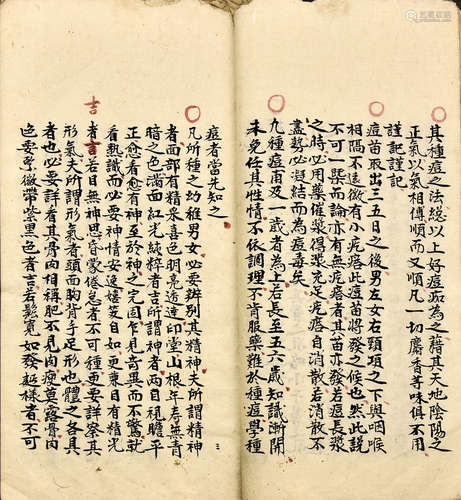 其種痘之法總以上好痘痂為之藉其天地陰陽之
正氣以氣相傳順而又順凡一切麝香等味俱不用
謹記謹記
痘苗取出三五日之後男左女右頸項之下與咽喉
相隔不遠微有小疙瘩此痘苗將發之候也然此說
不可一槩而論亦有無疙瘩者其苗亦發若痘長漿
之時必用藥催漿得漿充足疙瘩自消散若消散不
盡勢必凝結而為痘毒矣
九種痘男及一歲者為上若長至五六歲知識漸開
未免任其性情不依調理不肯服藥難於種痘學種
痘者當先知之
凡所種之幼稚男女必要辨別其精神夫所謂精神
者面部有精采喜色明亮透達印堂山根年壽無青
暗之色滿面紅光純粹者吉所謂神者兩目視瞻平
正愈看愈有神至於神之完固乍見奇異而不驚就
看熟識而必要神情安逸嬉笑自如更兼目有精光
者吉若目無神思昏蒙倦怠者不可種更要詳察其
形氣夫所謂形氣者頭面胸背手足形也體之各具
者也必要詳看其骨肉相稱肥不見肉瘦莫露骨肉
色要緊微帶紫黑色者吉若鬆寬如發麪樣者不可
吉